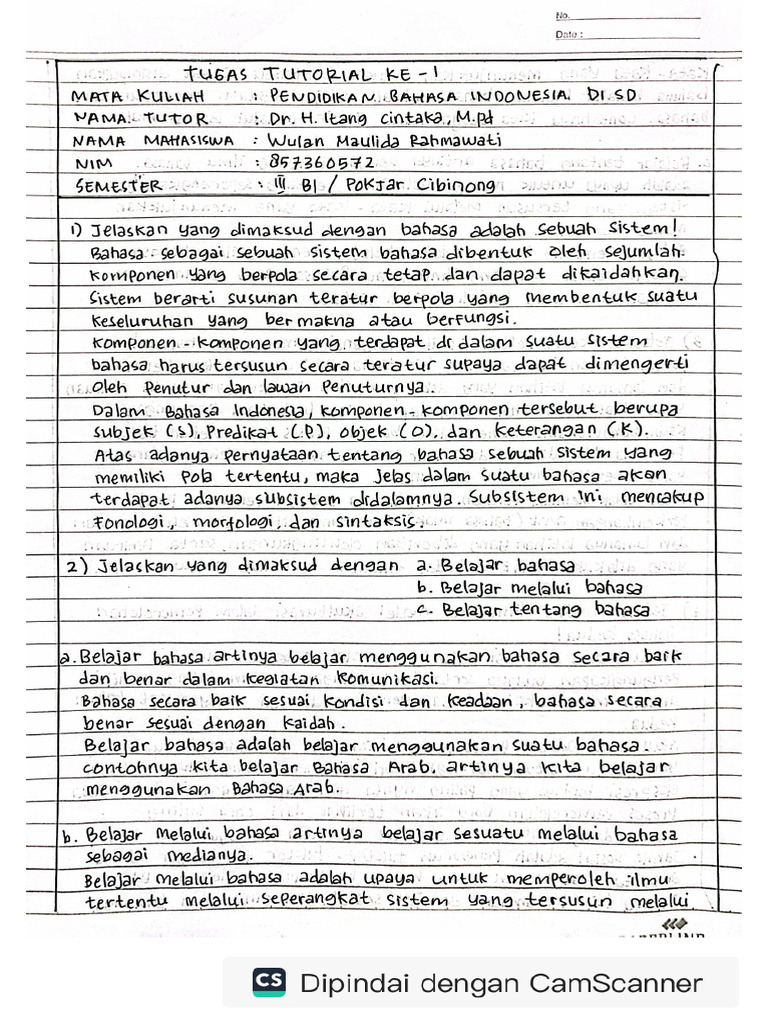 No.
Date :
TUGAS TUTORIAL KE - 1
MATA KULIAH : PENDIDIKAN BAHASA INDONESIA DI SD
NAMA TUTOR : Dr. H. Itang cintaka, M.pd
NAMA MAHASISWA : Wulan Maulida Rahmawati
NIM : 857360572
SEMESTER : III BI / Pokjar. Cibinong
1) Jelaskan yang dimaksud dengan bahasa adalah sebuah sistem!
Bahasa sebagai sebuah sistem bahasa dibentuk oleh sejumlah
komponen yang berpola secara tetap dan dapat dikaidahkan.
Sistem berarti susunan teratur berpola yang membentuk suatu
keseluruhan yang bermakna atau berfungsi.
Komponen - komponen yang terdapat di dalam suatu sistem
bahasa harus tersusun secara teratur supaya dapat dimengerti
oleh penutur dan lawan penuturnya.
Dalam Bahasa Indonesia, komponen - komponen tersebut berupa
subjek (S), Predikat (P), objek (O), dan keterangan (K).
Atas adanya pernyataan tentang bahasa sebuah sistem yang
memiliki pola tertentu, maka jelas dalam suatu bahasa akan
terdapat adanya subsistem didalamnya. Subsistem ini mencakup
Fonologi, morfologi, dan sintaksis.
2) Jelaskan yang dimaksud dengan a. Belajar bahasa
b. Belajar melalui bahasa
c. Belajar tentang bahasa
a. Belajar bahasa artinya belajar menggunakan bahasa secara baik
dan benar dalam kegiatan komunikasi.
Bahasa secara baik sesuai kondisi dan keadaan, bahasa secara
benar sesuai dengan kaidah.
Belajar bahasa adalah belajar menggunakan suatu bahasa.
contohnya kita belajar Bahasa Arab, artinya kita belajar
menggunakan Bahasa Arab.
b. Belajar melalui bahasa artinya belajar sesuatu melalui bahasa
sebagai medianya.
Belajar melalui bahasa adalah upaya untuk memperoleh ilmu
tertentu melalui seperangkat sistem yang tersusun melalui
CS Dipindai dengan CamScanner